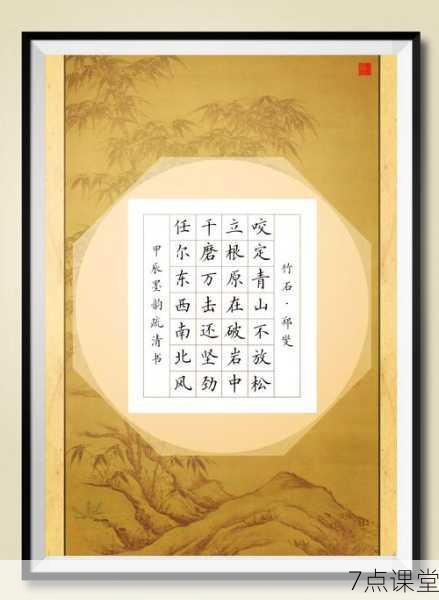 竹石·郑燮
咬定青山不放松
立根原在破岩中
千磨万击还坚劲
任尔东西南北风
甲辰墨韵疏清书
7点课堂